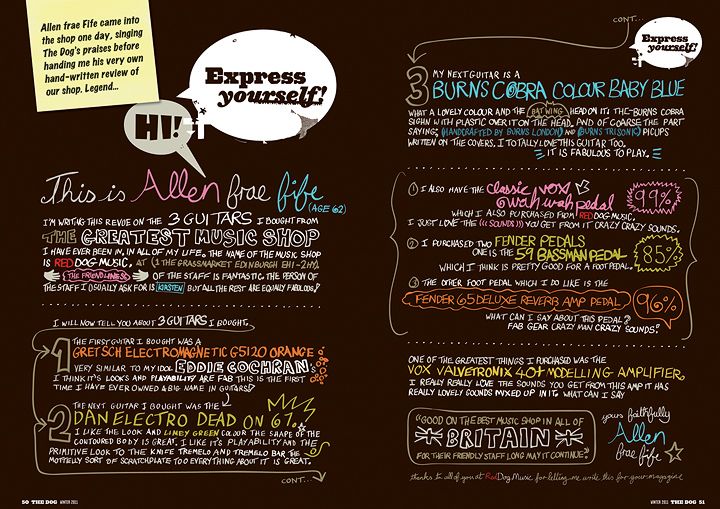 Allen frae Fife came into
the shop one day, singing
The Dog's praises before
handing me his very own
hand-written review of
our shop. Legend...
Express
yourself!
HI!
This is Allen frae fife
(AGE 62)
I'M WRITING THIS REVUE ON THE 3 GUITARS I BOUGHT FROM
THE GREATEST MUSIC SHOP
I HAVE EVER BEEN IN, IN ALL OF MY LIFE. THE NAME OF THE MUSIC SHOP
IS RED DOG MUSIC, AT (1 THE GRASSMARKET EDINBURGH EH1-2HY).
THE FRIENDLINESS OF THE STAFF IS FANTASTIC. THE PERSON OF
THE STAFF I USUALLY ASK FOR IS KIRSTEN BUT ALL THE REST ARE EQUALY FABULOUS!
I WILL NOW TELL YOU ABOUT 3 GUITARS I BOUGHT.
1 THE FIRST GUITAR I BOUGHT WAS A
GRETSCH ELECTROMAGNETIC G5120 ORANGE
VERY SIMILAR TO MY IDOL EDDIE COCHRAN.
I THINK IT'S LOOKS AND PLAYABILITY ARE FAB THIS IS THE FIRST
TIME I HAVE EVER OWNED A BIG NAME IN GUITARS!
2 THE NEXT GUITAR I BOUGHT WAS THE
DAN ELECTRO DEAD ON 67.
I LIKE THE LOOK AND LIMEY GREEN COLOUR THE SHAPE OF THE
CONTOURED BODY IS GREAT. I LIKE IT'S PLAYABILITY AND THE
PRIMITIVE LOOK TO THE KNIFE TREMELO AND TREMELO BAR THE
SORT OF SCRATCHPLATE TOO EVERYTHING ABOUT IT IS GREAT.
CONT...
50 THE DOG WINTER 2011
CONT...
Express
yourself!
3 MY NEXT GUITAR IS A
BURNS COBRA COLOUR BABY BLUE
WHAT A LOVELY COLOUR AND THE BAT WING HEAD ON IT! THE BURNS COBRA
SIGHN WITH PLASTIC OVER IT ON THE HEAD, AND OF COARSE THE PART
SAYING; (HANDCRAFTED BY BURNS LONDON) AND (BURNS TRISONIC) PICUPS
WRITTEN ON THE COVERS, I TOTALY LOVE THIS GUITAR TOO.
IT IS FABULOUS TO PLAY.
1 I ALSO HAVE THE classic vox
wah wah pedal
99%
WHICH I ALSO PURCHASED FROM RED DOG MUSIC.
I JUST LOVE THE ((SOUNDS)) YOU GET FROM IT CRAZY CRAZY SOUNDS.
2 I PURCHASED TWO FENDER PEDALS
ONE IS THE 59 BASSMAN PEDAL
85%
WHICH I THINK IS PRETTY GOOD FOR A FOOT PEDAL.
3 THE OTHER FOOT PEDAL WHICH I DO LIKE IS THE
FENDER 65 DELUXE REVERB AMP PEDAL
96%
WHAT CAN I SAY ABOUT THIS PEDAL?
FAB GEAR CRAZY MAN CRAZY SOUNDS!
ONE OF THE GREATEST THINGS I PURCHASED WAS THE
VOX VALVETRONIX 40+ MODELLING AMPLIFIER.
I REALLY REALLY LOVE THE SOUNDS YOU GET FROM THIS AMP IT HAS
REALLY LOVELY SOUNDS MIXED UP IN IT. WHAT CAN I SAY
"GOOD ON THE BEST MUSIC SHOP IN ALL OF
BRITAIN
FOR THEIR FRIENDLY STAFF LONG MAY IT CONTINUE"
yours faithfully
Allen
frae fife
thanks to all of you at Red Dog Music for letting me write this for your magazine
WINTER 2011 THE DOG 51